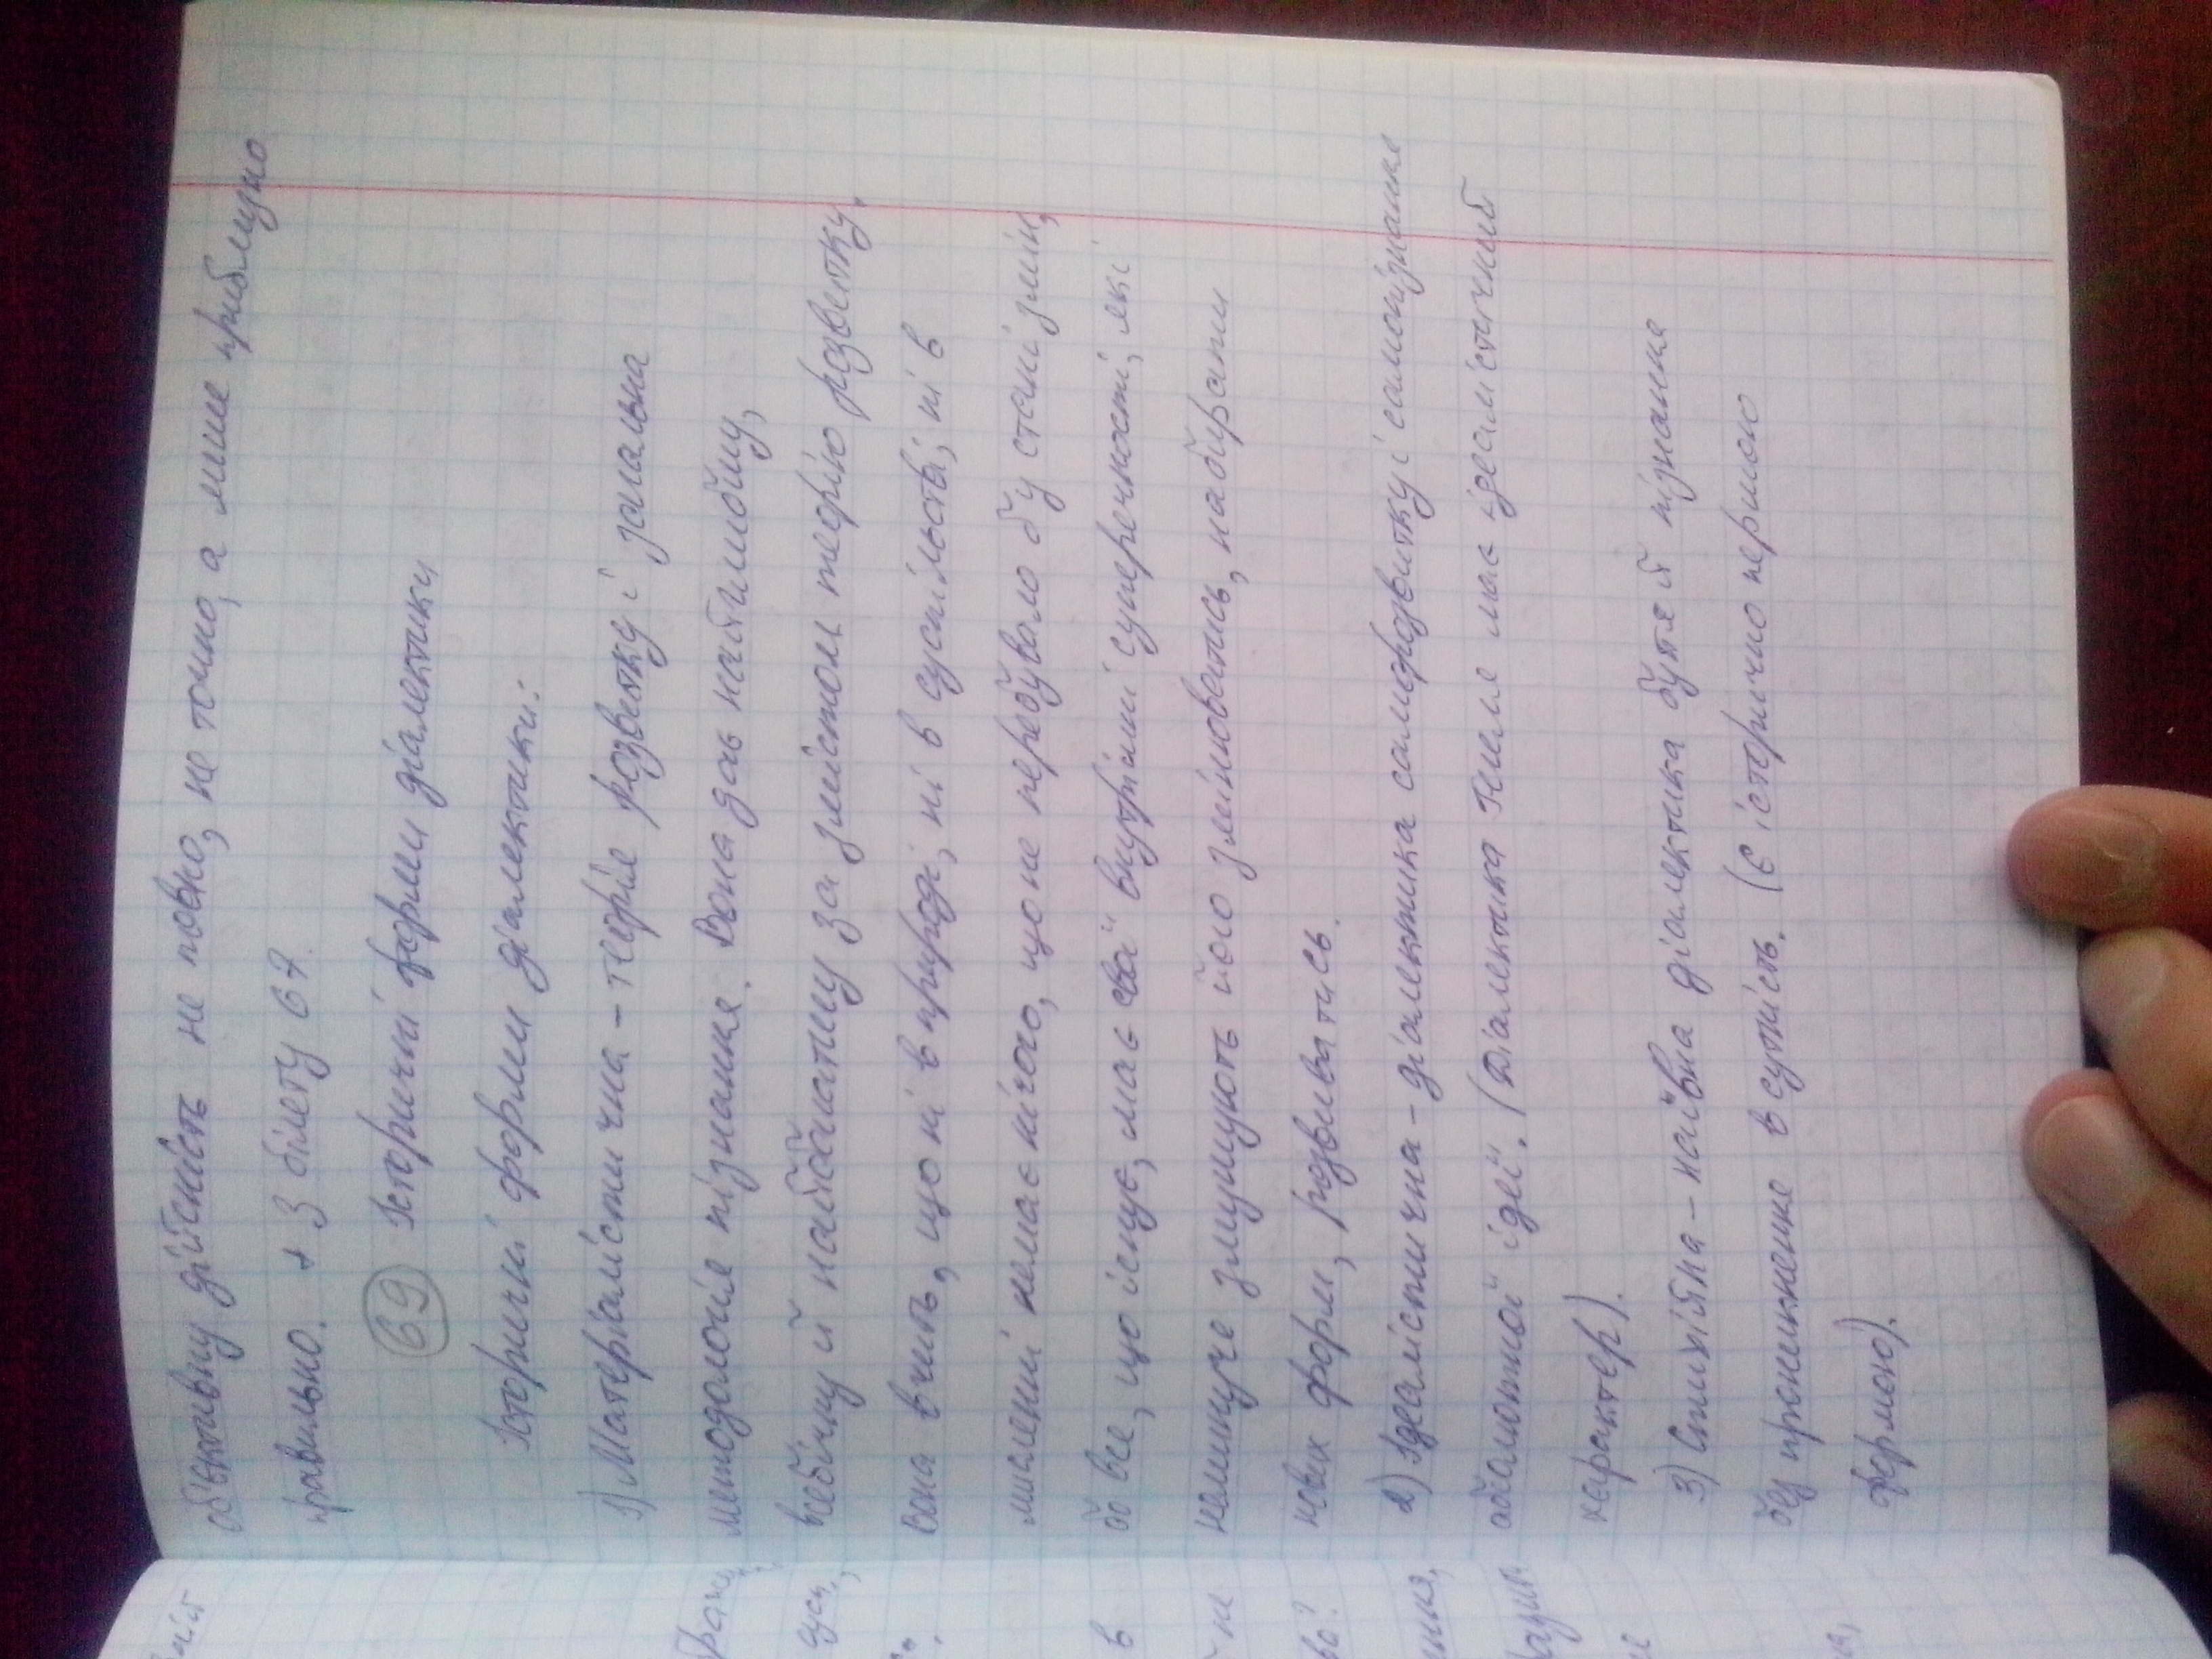 об'єктивну дійсність не повно, не точно, а лише приблизно
правильно. + З білету 67.
69 Історичні форми діалектики
Історичні форми діалектики:
1) Матеріалістична – теорія розвитку і загальна
методологія пізнання. Вона дає найглибшу,
всебічну й найбагатшу за змістом теорію розвитку.
Вона вчить, що ні в природі, ні в суспільстві, ні в
мисленні немає нічого, що не перебувало б у стані змін,
бо все, що існує, має свої внутрішні суперечності, які
неминуче змушують його змінюватись, набирати
нових форм, розвиватись.
2) Ідеалістична – діалектика саморозвитку і самопізнання
абсолютної ідеї. (Діалектика Гегеля має ідеалістичний
характер).
3) Стихійна – наївна діалектика буття й пізнання
без проникнення в сутність. (Є історично першою
формою).